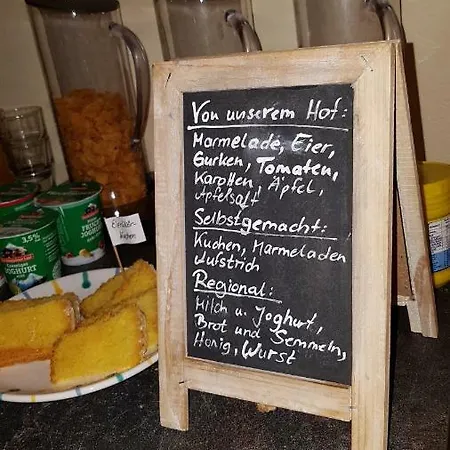 Von unserem Hof:
Marmelade, Eier,
Gurken, Tomaten,
Karotten, Äpfel,
Apfelsaft
Selbstgemacht:
Kuchen, Marmeladen
Aufstrich
Regional:
Milch u. Joghurt,
Brot und Semmeln,
Honig, Wurst
Eierlikör-
kuchen
3,5%